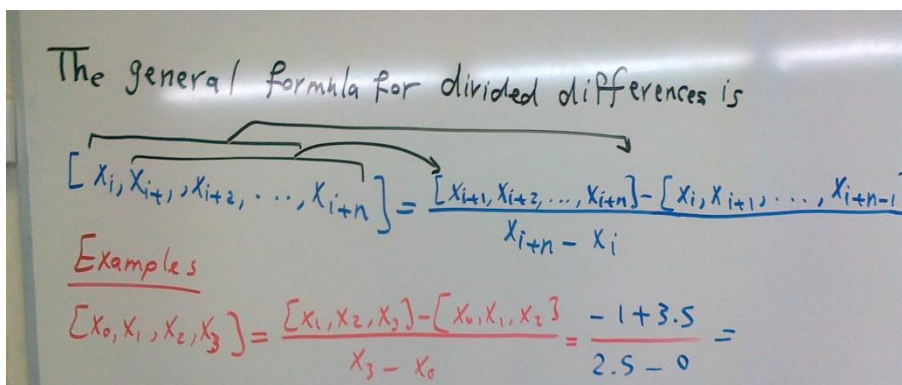 The general formula for divided differences is
[x_i, x_{i+1}, x_{i+2}, ..., x_{i+n}] = \frac{[x_{i+1}, x_{i+2}, ..., x_{i+n}] - [x_i, x_{i+1}, ..., x_{i+n-1}]}{x_{i+n} - x_i}
Examples
[x_0, x_1, x_2, x_3] = \frac{[x_1, x_2, x_3] - [x_0, x_1, x_2]}{x_3 - x_0} = \frac{-1+3.5}{2.5-0} =